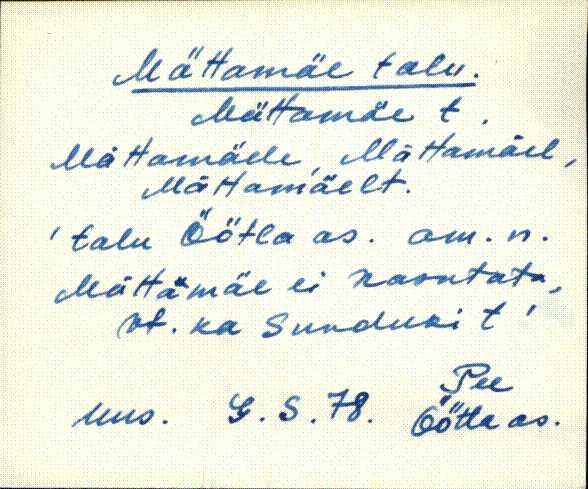 Mättamäe talu.
Mättamäe t.
Mättamäele, Mättamäel,
Mättamäelt.
'talu Öötla as. am. n.
Mättämäe ei kasutata,
vt. ka Sunduki t'
Pee
Uus. G. S. 78. Öötla as.